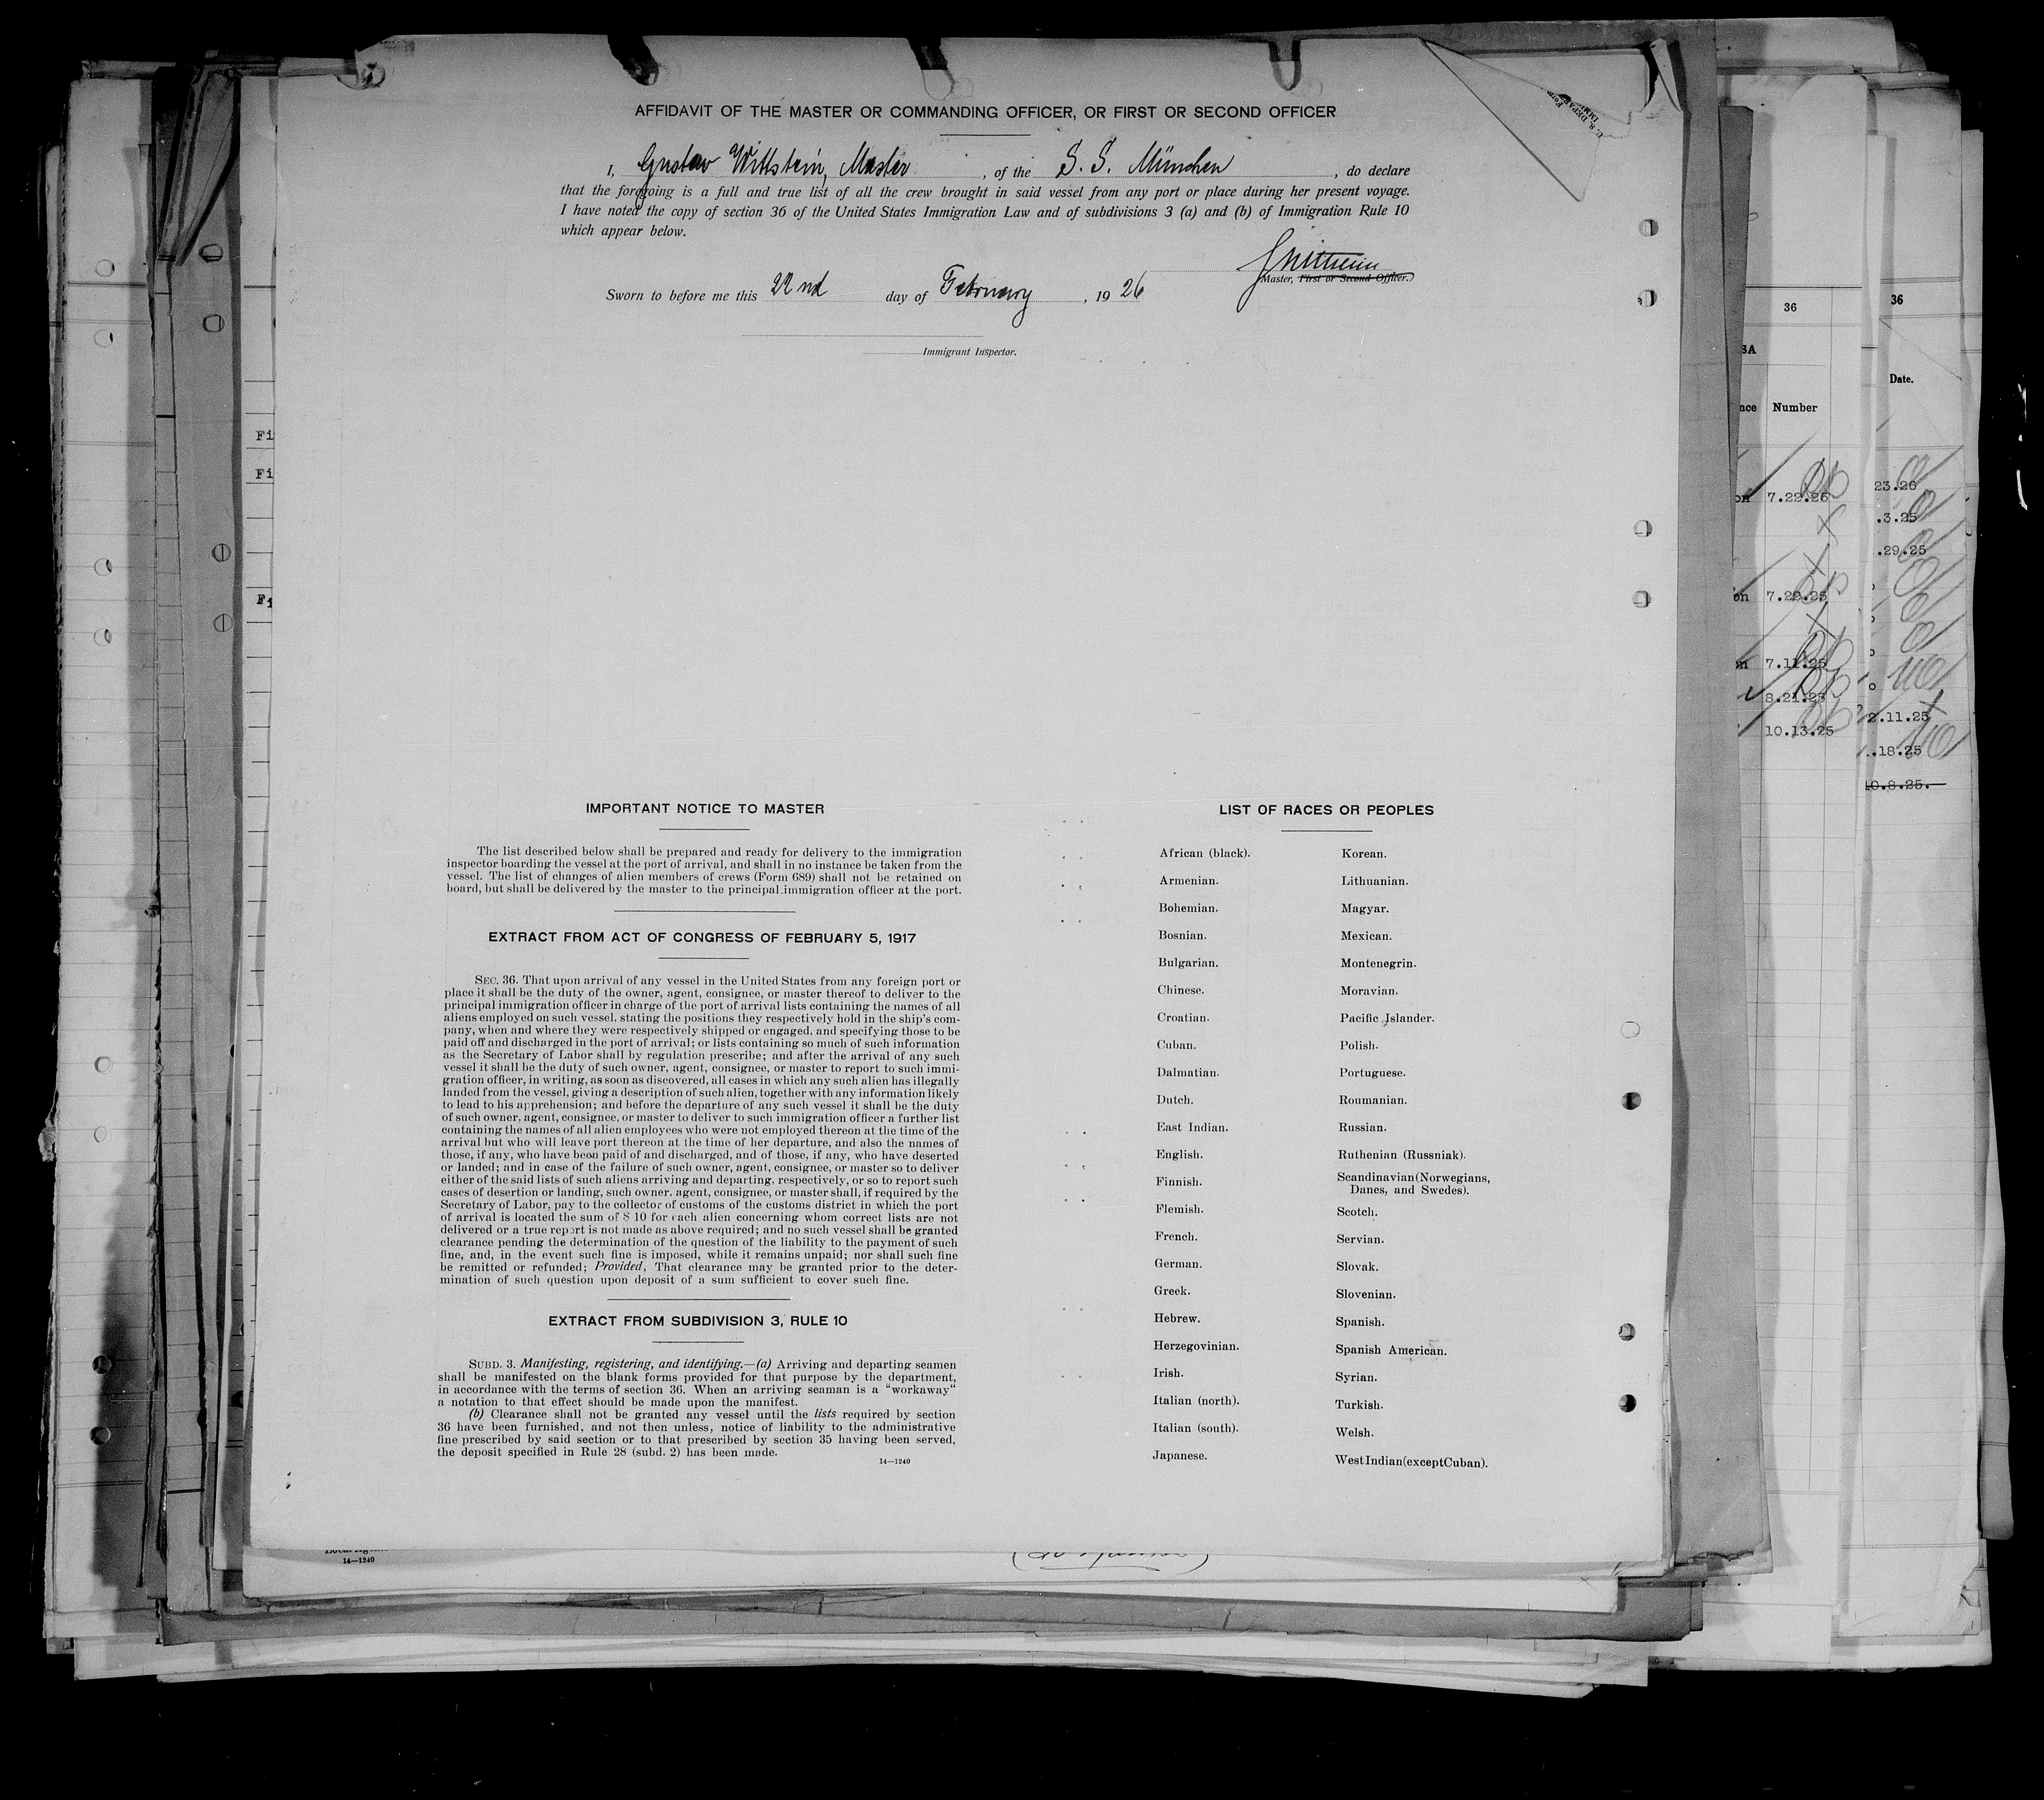 AFFIDAVIT OF THE MASTER OR COMMANDING OFFICER, OR FIRST OR SECOND OFFICER
I, Gustav Wittstein, Master, of the S. S. München, do declare
that the foregoing is a full and true list of all the crew brought in said vessel from any port or place during her present voyage.
I have noted the copy of section 36 of the United States Immigration Law and of subdivisions 3 (a) and (b) of Immigration Rule 10
which appear below.
Master, First or Second Officer.
Sworn to before me this 22nd day of February, 1926
Immigrant Inspector.
IMPORTANT NOTICE TO MASTER
The list described below shall be prepared and ready for delivery to the immigration
inspector boarding the vessel at the port of arrival, and shall in no instance be taken from the
vessel. The list of changes of alien members of crews (Form 689) shall not be retained on
board, but shall be delivered by the master to the principal immigration officer at the port.
EXTRACT FROM ACT OF CONGRESS OF FEBRUARY 5, 1917
SEC. 36. That upon arrival of any vessel in the United States from any foreign port or
place it shall be the duty of the owner, agent, consignee, or master thereof to deliver to the
principal immigration officer in charge of the port of arrival lists containing the names of all
aliens employed on such vessel, stating the positions they respectively hold in the ship's com-
pany, when and where they were respectively shipped or engaged, and specifying those to be
paid off and discharged in the port of arrival; or lists containing so much of such information
as the Secretary of Labor shall by regulation prescribe; and after the arrival of any such
vessel it shall be the duty of such owner, agent, consignee, or master to report to such immi-
gration officer, in writing, as soon as discovered, all cases in which any such alien has illegally
landed from the vessel, giving a description of such alien, together with any information likely
to lead to his apprehension; and before the departure of any such vessel it shall be the duty
of such owner, agent, consignee, or master to deliver to such immigration officer a further list
containing the names of all alien employees who were not employed thereon at the time of the
arrival but who will leave port thereon at the time of her departure, and also the names of
those, if any, who have been paid of and discharged, and of those, if any, who have deserted
or landed; and in case of the failure of such owner, agent, consignee, or master so to deliver
either of the said lists of such aliens arriving and departing, respectively, or so to report such
cases of desertion or landing, such owner, agent, consignee, or master shall, if required by the
Secretary of Labor, pay to the collector of customs of the customs district in which the port
of arrival is located the sum of $ 10 for each alien concerning whom correct lists are not
delivered or a true report is not made as above required; and no such vessel shall be granted
clearance pending the determination of the question of the liability to the payment of such
fine, and, in the event such fine is imposed, while it remains unpaid; nor shall such fine
be remitted or refunded; Provided, That clearance may be granted prior to the deter-
mination of such question upon deposit of a sum sufficient to cover such fine.
EXTRACT FROM SUBDIVISION 3, RULE 10
SUBD. 3. Manifesting, registering, and identifying.—(a) Arriving and departing seamen
shall be manifested on the blank forms provided for that purpose by the department,
in accordance with the terms of section 36. When an arriving seaman is a "workaway"
a notation to that effect should be made upon the manifest.
(b) Clearance shall not be granted any vessel until the lists required by section
36 have been furnished, and not then unless, notice of liability to the administrative
fine prescribed by said section or to that prescribed by section 35 having been served,
the deposit specified in Rule 28 (subd. 2) has been made.
14—1240
LIST OF RACES OR PEOPLES
African (black).
Armenian.
Bohemian.
Bosnian.
Bulgarian.
Chinese.
Croatian.
Cuban.
Dalmatian.
Dutch.
East Indian.
English.
Finnish.
Flemish.
French.
German.
Greek.
Hebrew.
Herzegovinian.
Irish.
Italian (north).
Italian (south).
Japanese.
Korean.
Lithuanian.
Magyar.
Mexican.
Montenegrin.
Moravian.
Pacific Islander.
Polish.
Portuguese.
Roumanian.
Russian.
Ruthenian (Russniak).
Scandinavian (Norwegians,
Danes, and Swedes).
Scotch.
Servian.
Slovak.
Slovenian.
Spanish.
Spanish American.
Syrian.
Turkish.
Welsh.
West Indian (except Cuban).
14—1240
36
Number
7.22.26
7.22.25
7.11.25
8.21.25
10.13.25
36
Date.
23.26
.3.25
.29.25
2.11.25
.18.25
10.8.25.